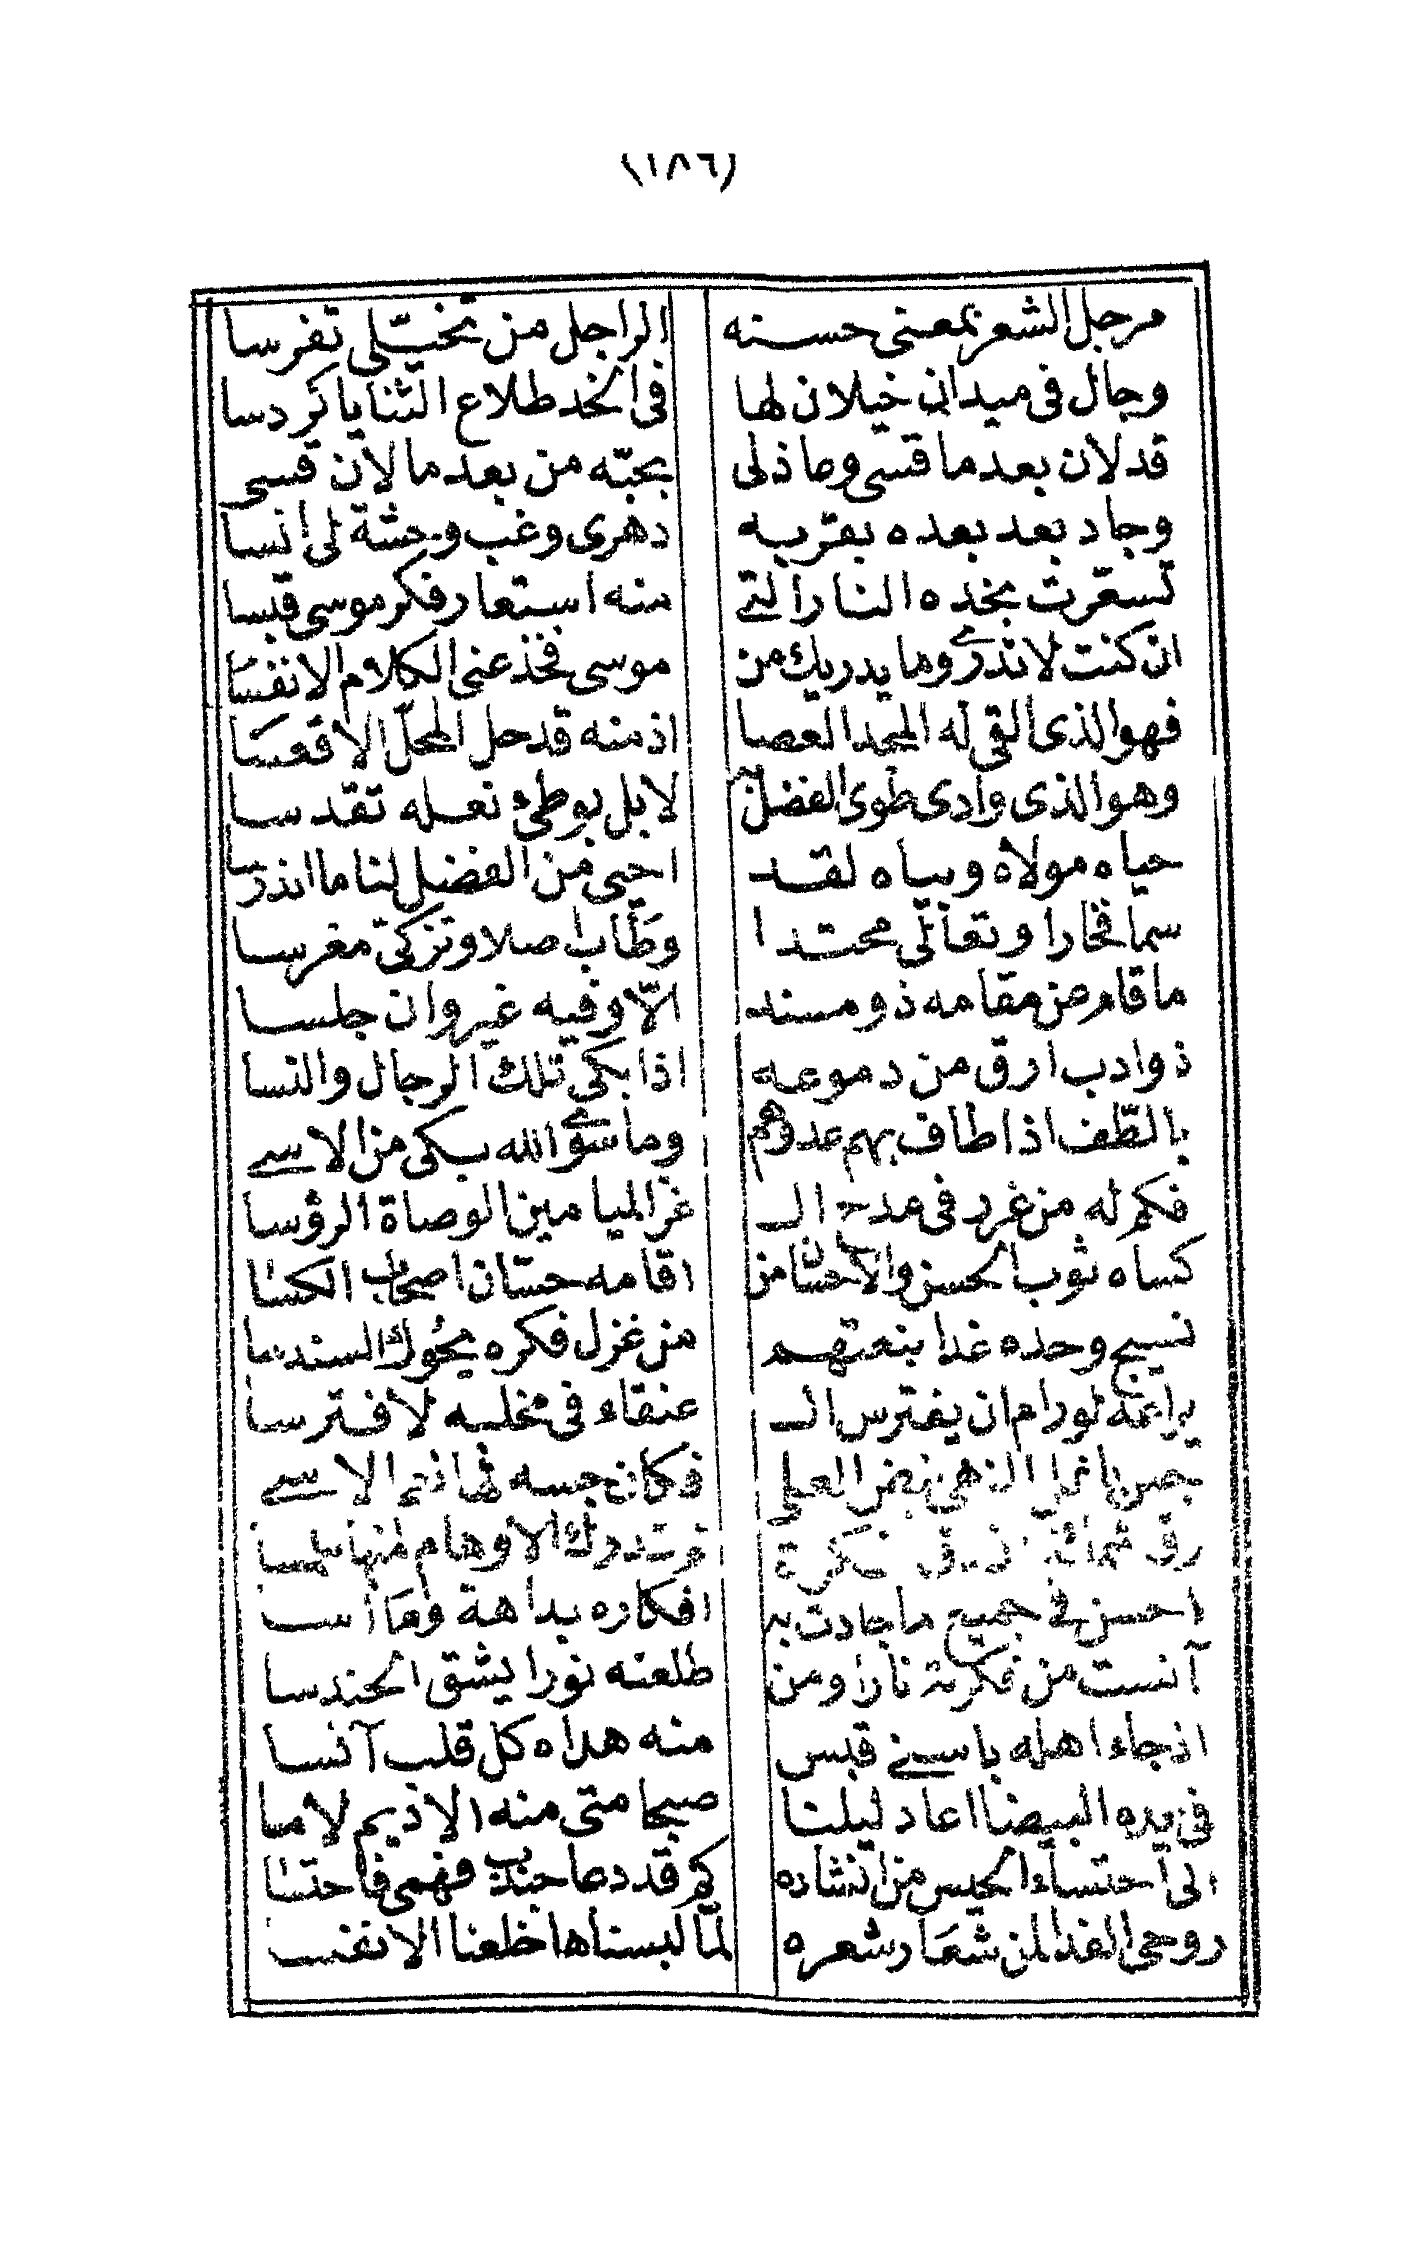 (١٨٦)
مرجل الشعر بمعنى حسنه الراجل من تخيّلي تفرسا
وجال في ميدان خيلان لها في الخد طلاع الثنايا كردسا
قد لان بعد ما قسى وما ذلى بحبّه من بعد ما لان قسى
وجاد بعد بعده بقربه دهرى وغب وحشة لى انسا
تسعّرت بخده النار التي منه استعار فكر موسى قبسا
ان كنت لا تدرى وما يدريك من موسى فخذ عنى الكلام الانفسا
فهو الذى القى له المجد العصا اذ منه قد حل المحلّ الاقعسا
وهو الذى وادى طوى الفضل به لا بل بوطئ نعله تقدسا
حياه مولاه وبياه لقد احيى من الفضل لنا ما اندرسا
سما فخارا وتعالى محتدا وطاب اصلا وتزكى مغرسا
ما قام من مقامه ذو مسند الّا وفيه غيره ان جلسا
ذو ادب ارق من دموعه اذا بكى تلك الرجال والنسا
بالطّف اذا طاف بهم عدوهم وما سوى الله بكى من الاسى
فكم له من غرد في مدح ال غر الميامين الوصاة الرؤسا
كساه ثوب الحسن والاحسان من اقامه حسّان اصحاب الكسا
نسيج وحده غدا بنعتهم من غزل فكره يحوك السندسا
يراعه لو رام ان يفترس ال عنقاء في مخلبه لافترسا
جس بانمل الذهى نبض العلى فكان جسه لها نعم الاسى
رق فكرة تدرك الاوهام منها ملمسا
احسن في جميع ما جادت به افكاره بداهة وما أسا
آنست من فكرته نارا ومن طلعته نورا يشق الحندسا
اذ جاء اهله باسنى قبس منه هداه كل قلب آنسا
في يده البيضا اعاد ليلتنا صبحا متى منه الاديم لامسا
الى احتساء الحيس من انشاده كم قد دعا حبيب فهمى فاحتسا
روحى الفدا لمن شعار شعره لمّا لبسناها خلعنا الانفسا